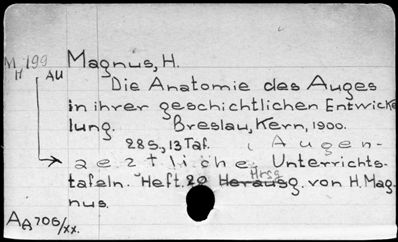 M 199 Magnus, H.
H AU
Die Anatomie des Auges
in ihrer geschichtlichen Entwicke
lung. Breslau, Kern, 1900.
28 S., 13 Taf. (Augen-
aeztliche Unterrichts-
tafeln. Heft. 20 Herausg. Hrsg. von H. Mag-
nus.
AA 706/xx.